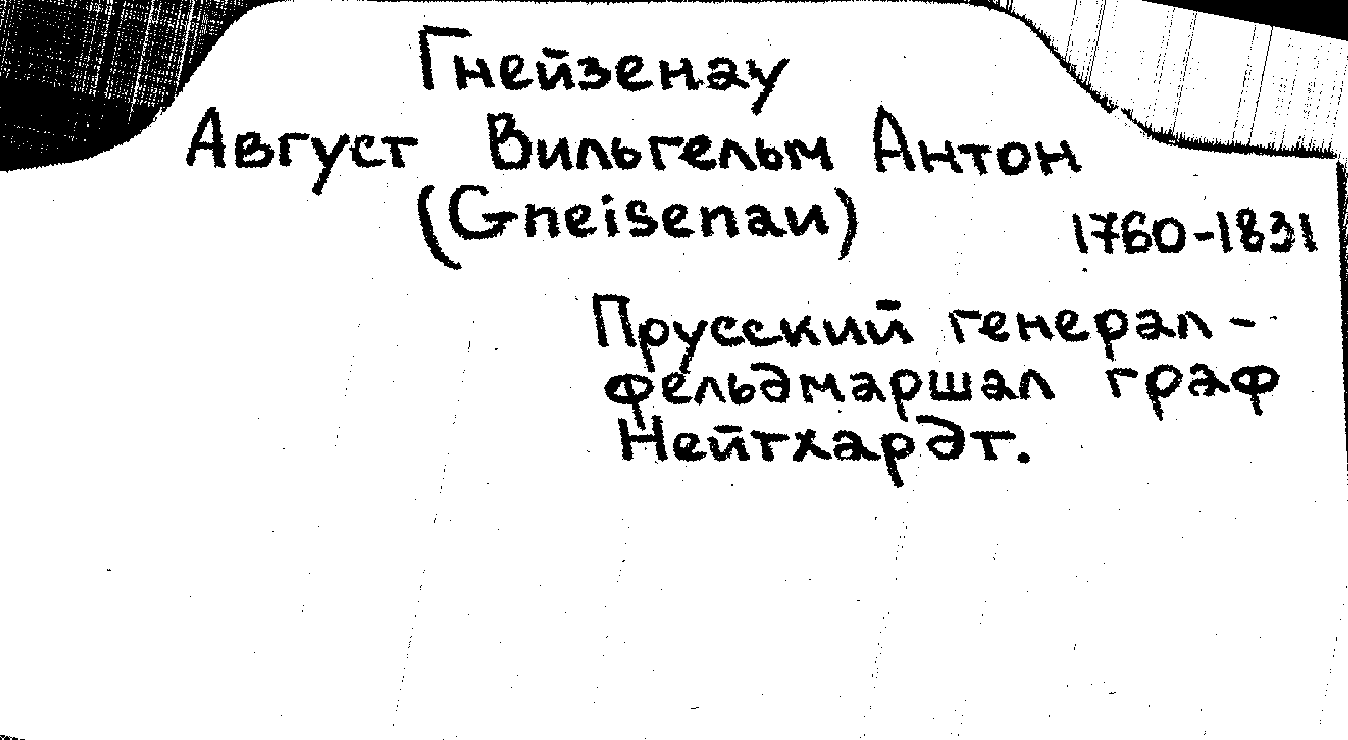 Гнейзенау
Август Вильгельм Антон
(Gneisenau)
1760-1831
Прусский генерал-
фельдмаршал граф
Нейтхардт.